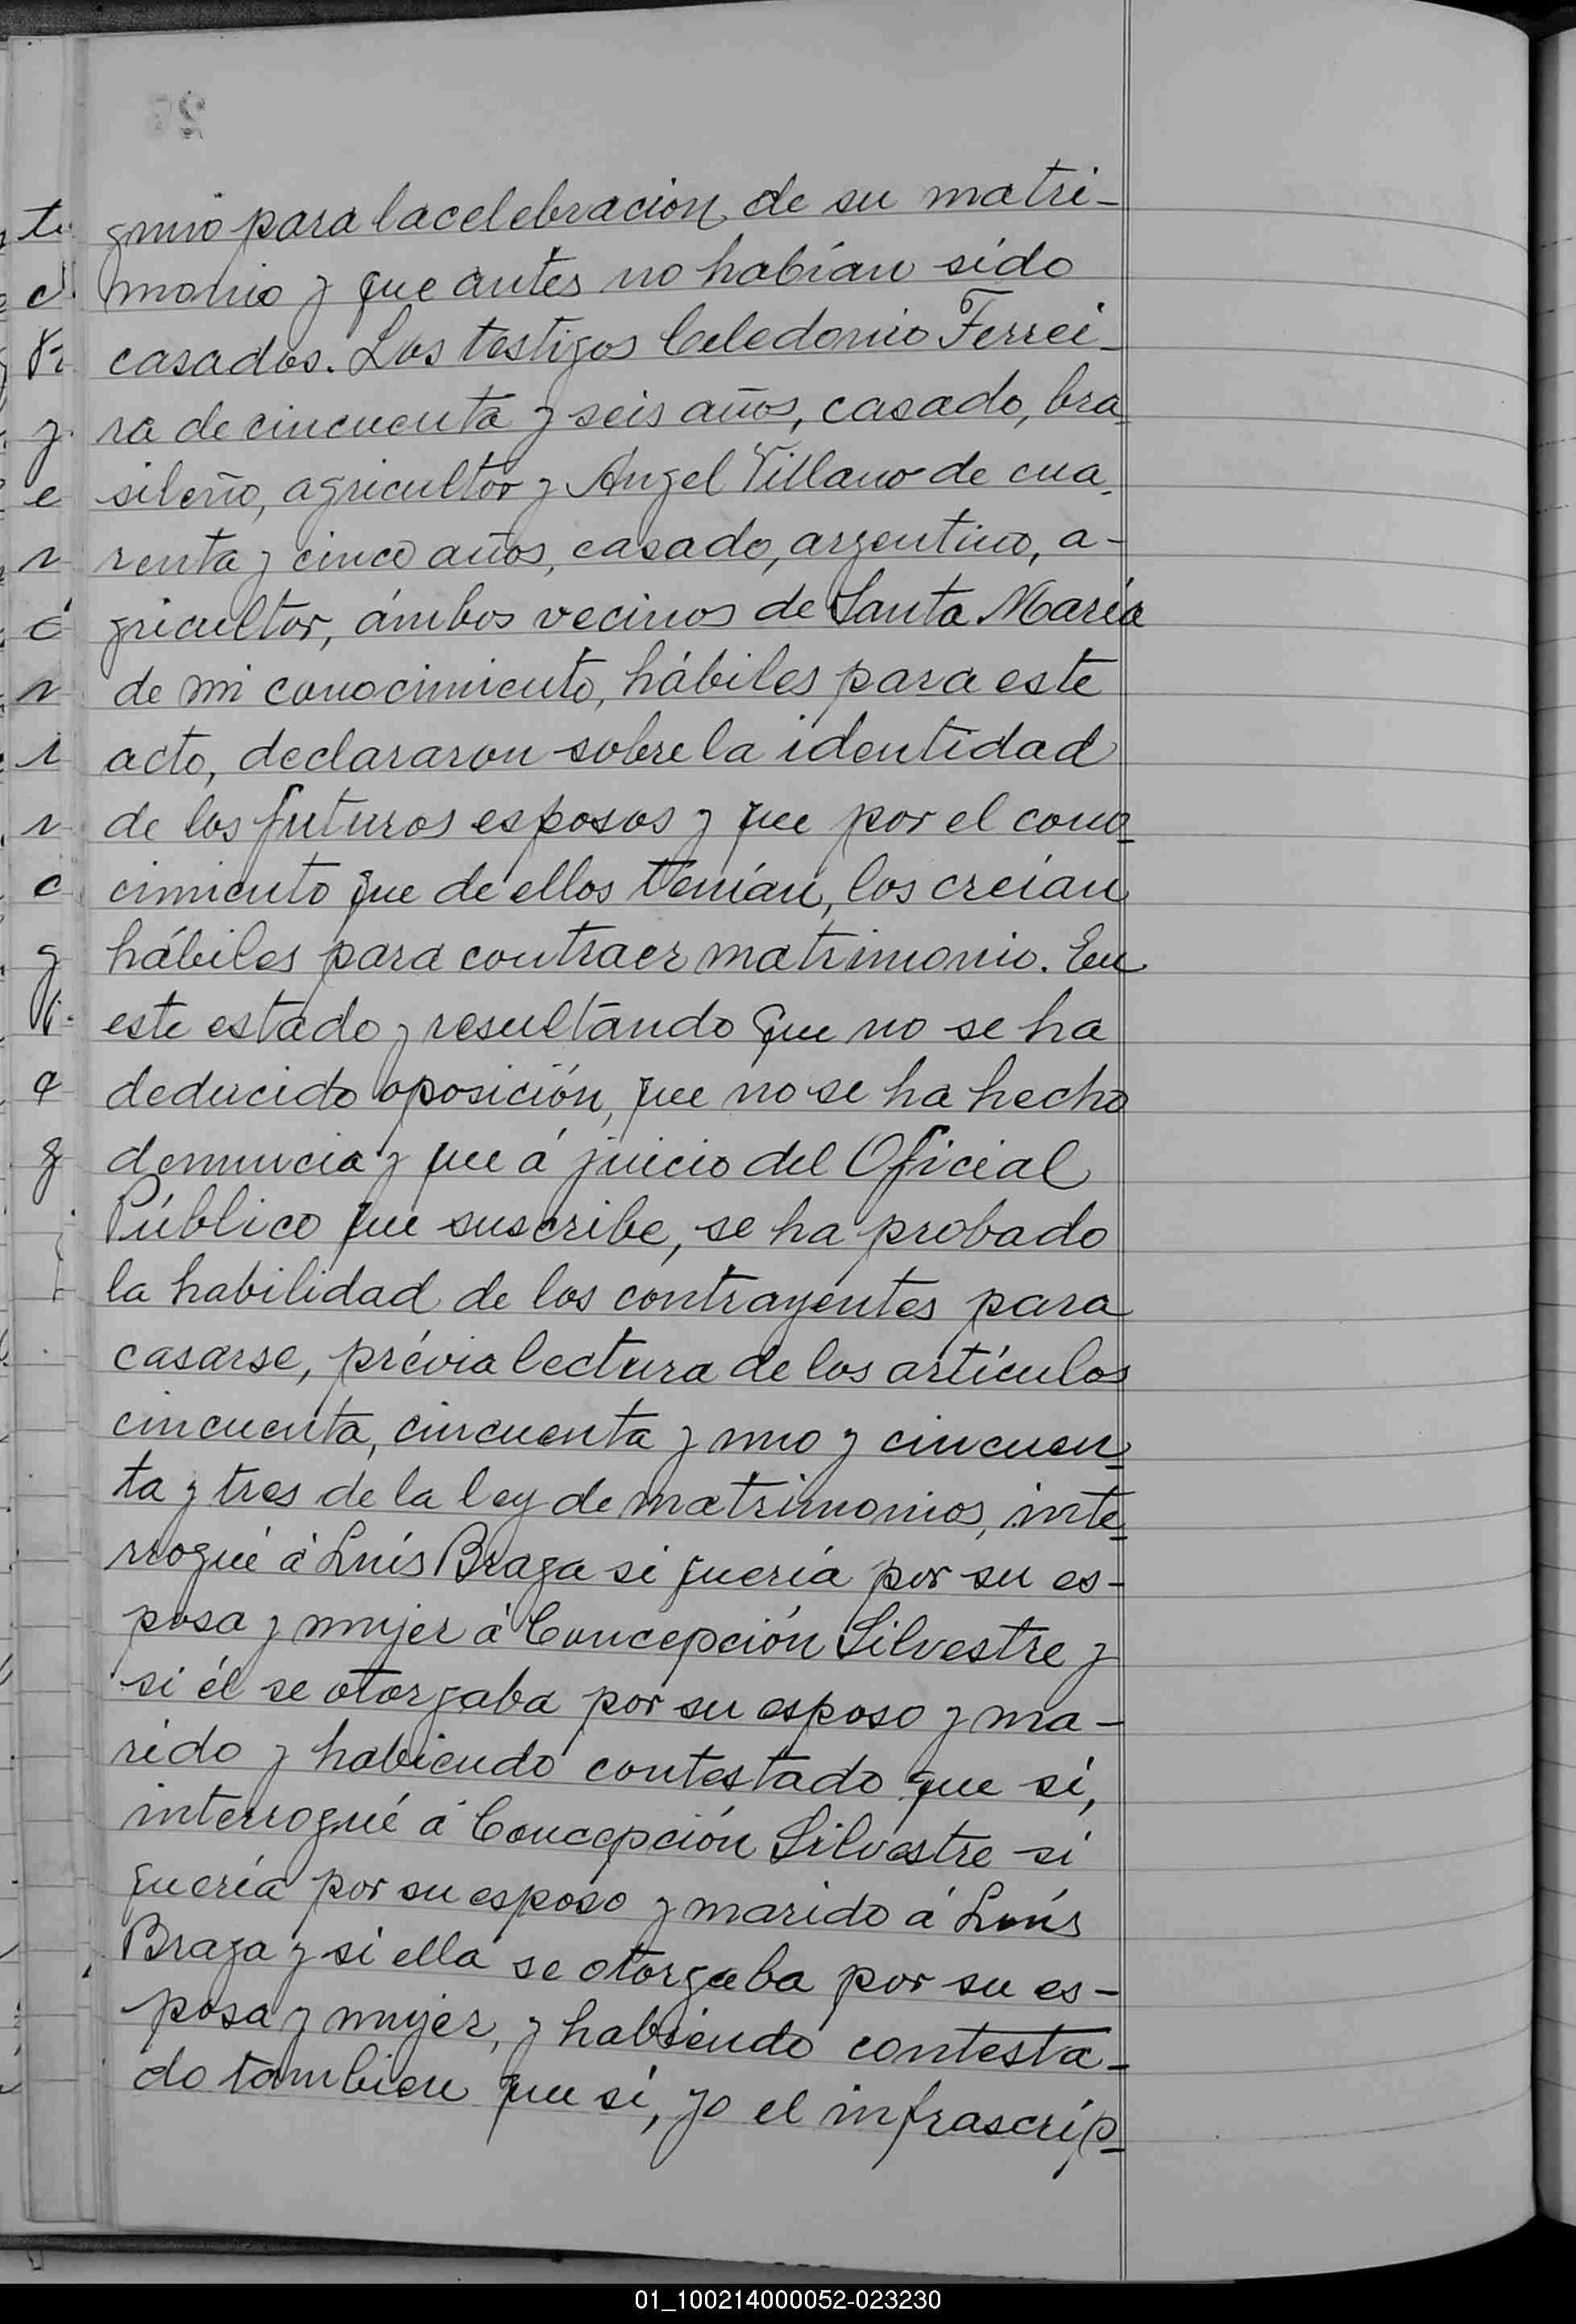 guno para la celebracion de su matri-
monio y que antes no habían sido
casados. Los testigos Celedonio Ferrei-
ra de cincuenta y seis años, casado, bra-
sileño, agricultor y Angel Villano de cua-
renta y cinco años, casado, argentino, a-
gricultor, ámbos vecinos de Santa María
de mi conocimiento, hábiles para este
acto, declararon sobre la identidad
de los futuros esposos y que por el cono-
cimiento que de ellos tenían, los creían
hábiles para contraer matrimonio. En
este estado y resultando que no se ha
deducido oposición, que no se ha hecho
denuncia y que á juicio del Oficial
Público que suscribe, se ha probado
la habilidad de los contrayentes para
casarse, prévia lectura de los artículos
cincuenta, cincuenta y uno y cincuen-
ta y tres de la ley de matrimonios, inte-
rrogué á Luís Braga si quería por su es-
posa y mujer á Concepción Silvestre y
si él se otorgaba por su esposo y ma-
rido y habiendo contestado que sí,
interrogué á Concepción Silvestre si
quería por su esposo y marido á Luís
Braga y si ella se otorgaba por su es-
posa y mujer, y habiendo contesta-
do tambien que sí, yo el infrascrip-
01_100214000052-023230